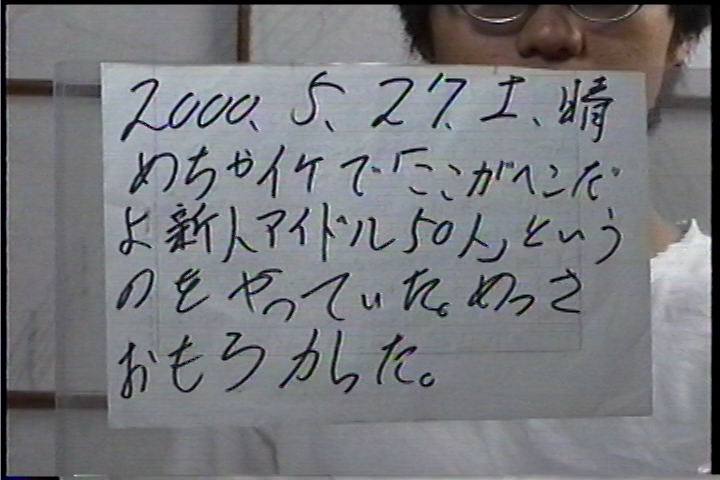 2000、5、27、土、晴
めちゃイケで「ここがヘンだ
よ新人アイドル50人」という
のをやっていた。めっさ
おもろかった。